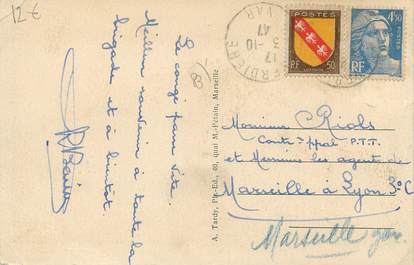 12€
Le congé passe vite.
Meilleur souvenir à toute la
brigade et à bientôt.
83
A. Tardy, Pte-Ed., 40, quai M.-Pétain, Marseille
17
3-10
47
VAR
POSTES
RF 50
4F50
RF
Monsieur Riols
Contr. ppal P.T.T.
et Messieurs les agents de
Marseille à Lyon 3°C
Marseille gare